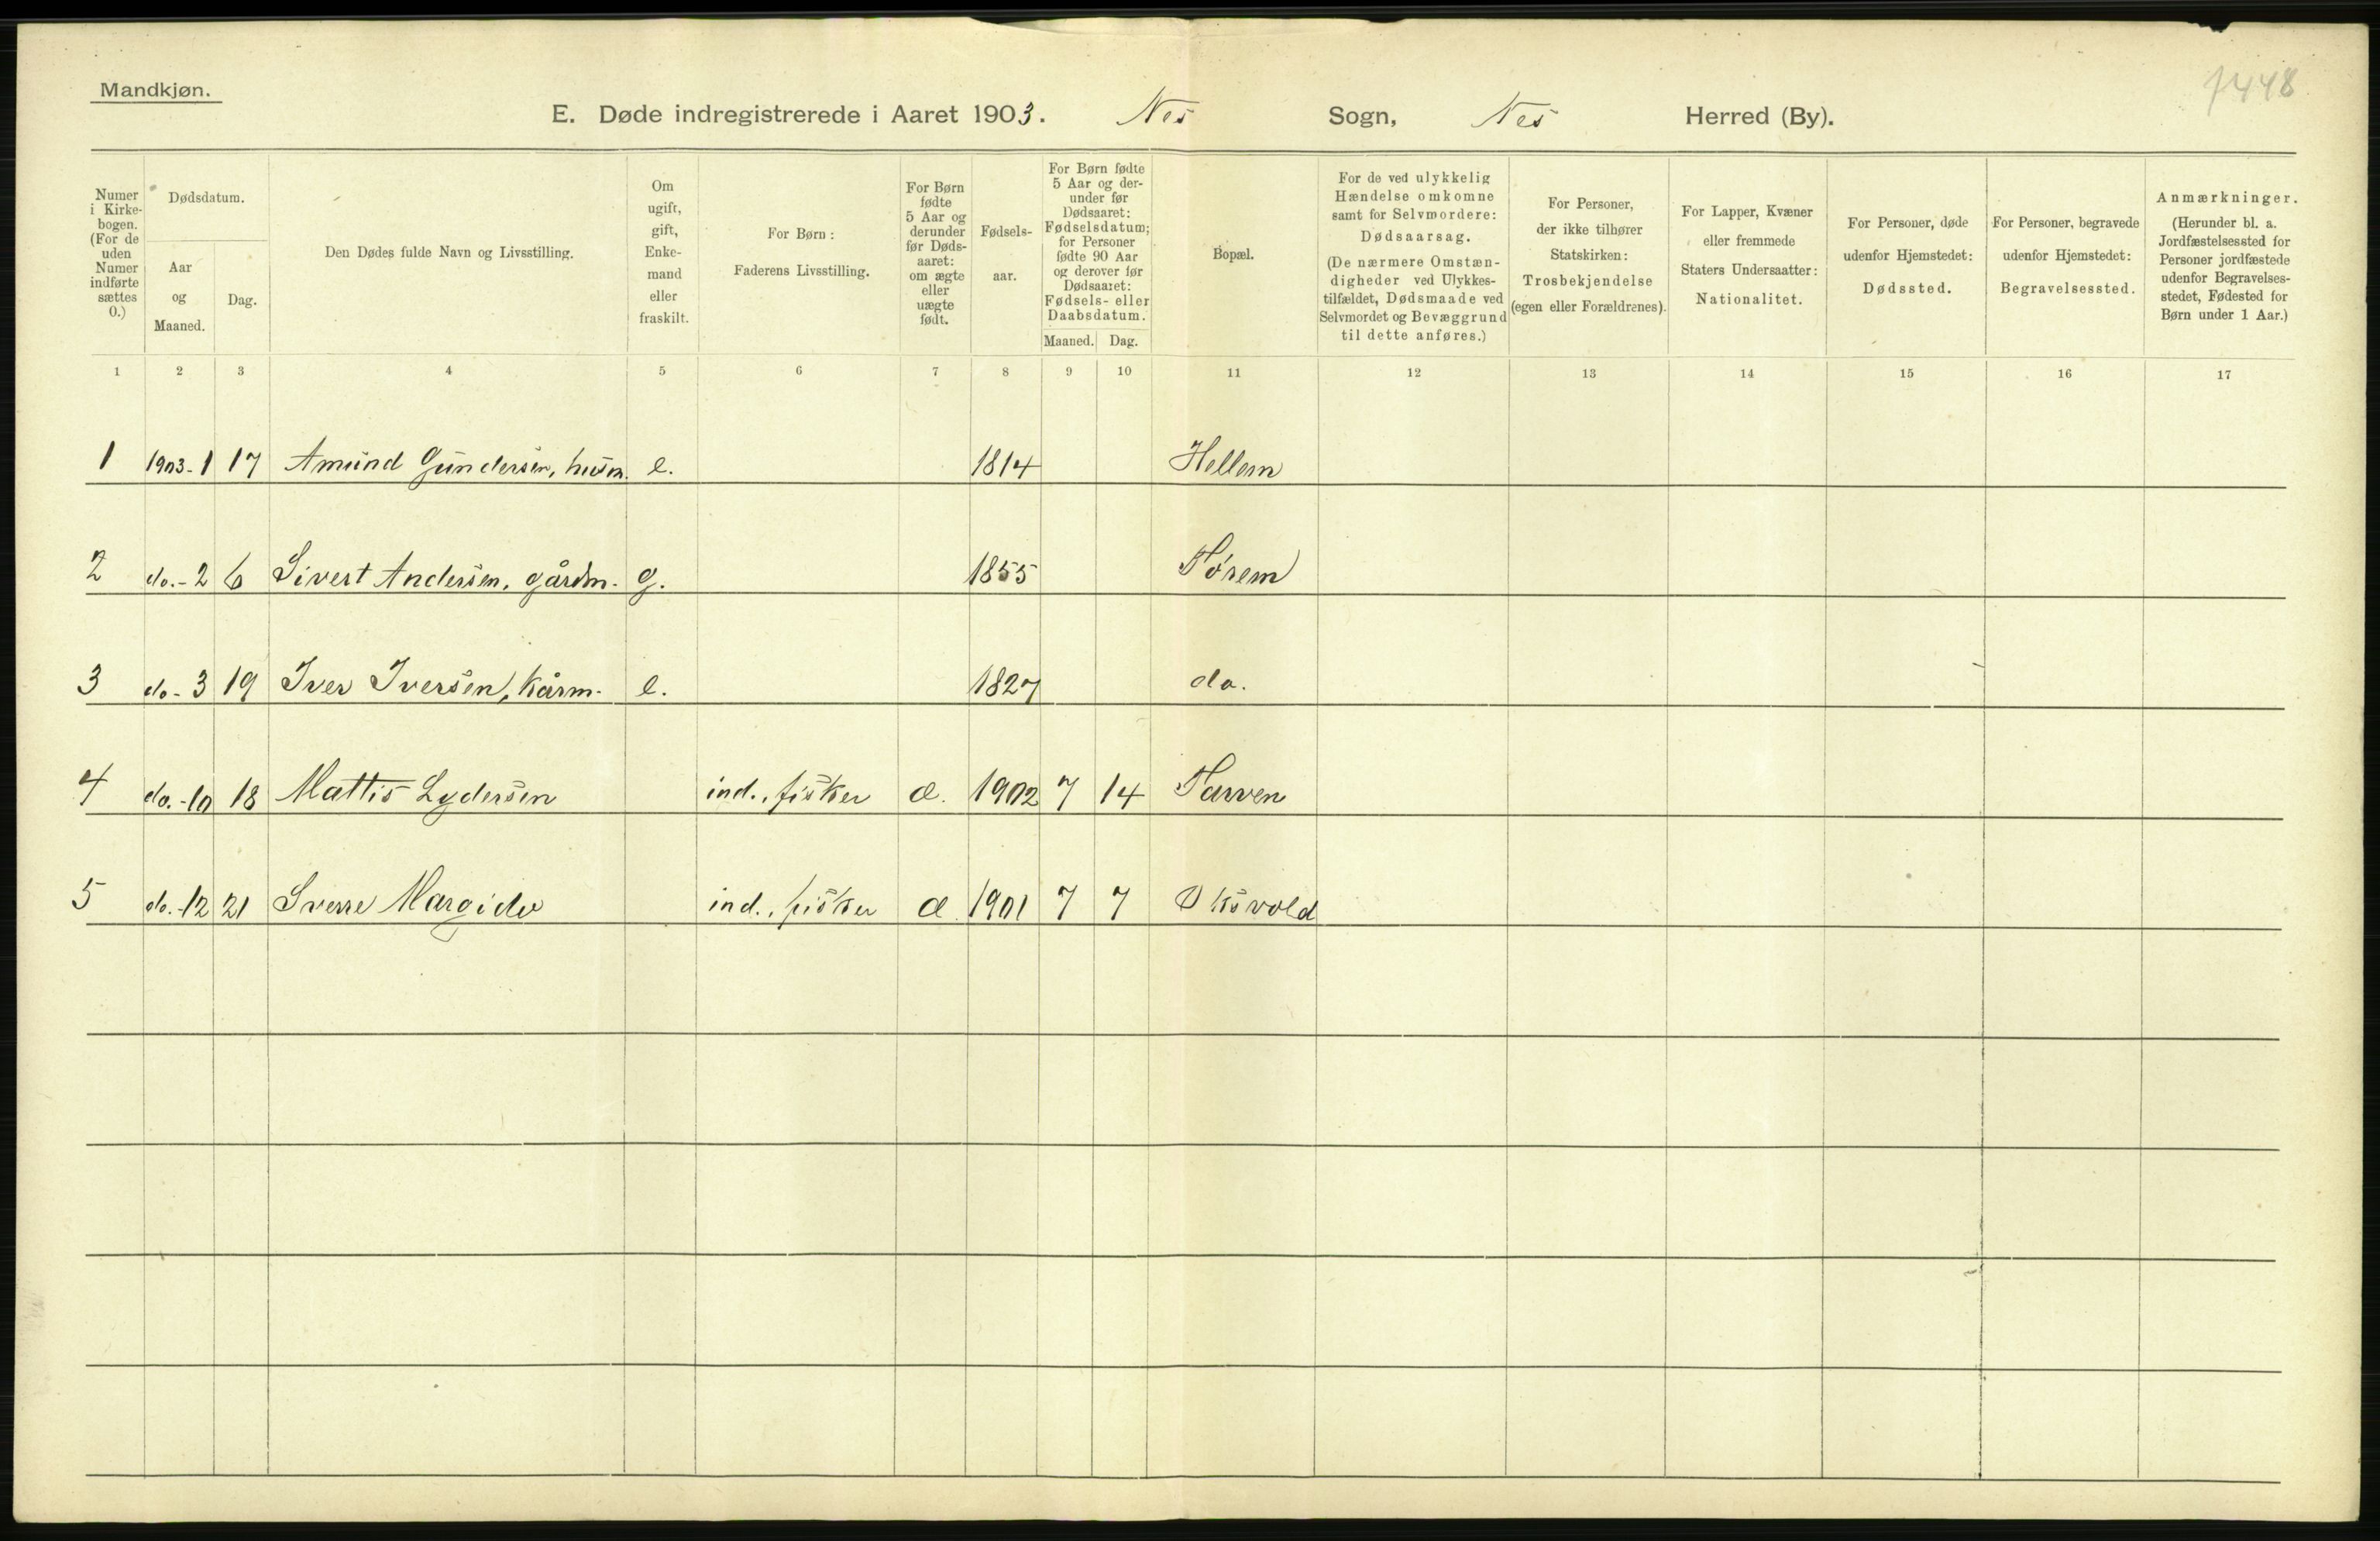 Mandkjøn.
7448
E. Døde indregistrerede i Aaret 1903. Nes Sogn, Nes Herred (By).
Numer i Kirke-bogen. (For de uden Numer indførte sættes 0.)
Dødsdatum.
Aar og Maaned.
Dag.
Den Dødes fulde Navn og Livsstilling.
Om ugift, gift, Enke-mand eller fraskilt.
For Børn: Faderens Livsstilling.
For Børn fødte 5 Aar og derunder før Døds-aaret: om ægte eller uægte født.
Fødsels-aar.
For Børn fødte 5 Aar og der-under før Dødsaaret: Fødselsdatum; for Personer fødte 90 Aar og derover før Dødsaaret: Fødsels- eller Daabsdatum.
Maaned. Dag.
Bopæl.
For de ved ulykkelig Hændelse omkomne samt for Selvmordere: Dødsaarsag. (De nærmere Omstæn-digheder ved Ulykkes-tilfældet, Dødsmaade ved Selvmordet og Bevæggrund til dette anføres.)
For Personer, der ikke tilhører Statskirken: Trosbekjendelse (egen eller Forældrenes).
For Lapper, Kvæner eller fremmede Staters Undersaatter: Nationalitet.
For Personer, døde udenfor Hjemstedet: Dødssted.
For Personer, begravede udenfor Hjemstedet: Begravelsessted.
Anmærkninger. (Herunder bl. a. Jordfæstelsessted for Personer jordfæstede udenfor Begravelses-stedet, Fødested for Børn under 1 Aar.)
1 2 3 4 5 6 7 8 9 10 11 12 13 14 15 16 17
1 1903-1 17 Amund Gundersen, husm. e. 1814 Hellem
2 do.-2 6 Sivert Andersen, gårdm. g. 1855 Tørem
3 do-3 19 Iver Iversen, kårm. e. 1827 do.
4 do.-10 18 Mattis Lydersen ind., fisker æ. 1902 7 14 Tarven
5 do.-12 21 Sverre Margido ind., fisker æ. 1901 7 7 Oksvold